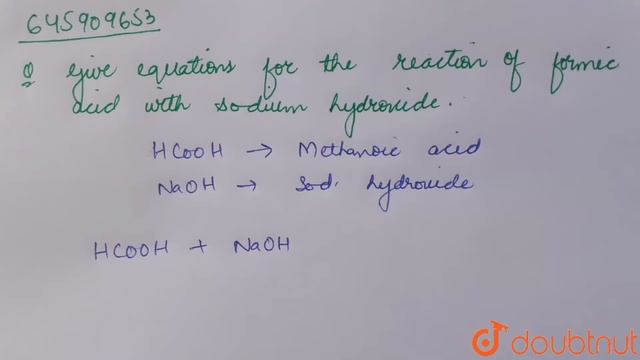 645909653
Q Give equations for the reaction of formic
acid with sodium hydroxide.
HCOOH → Methanoic acid
NaOH → Sod. hydroxide
HCOOH + NaOH
doubtnut